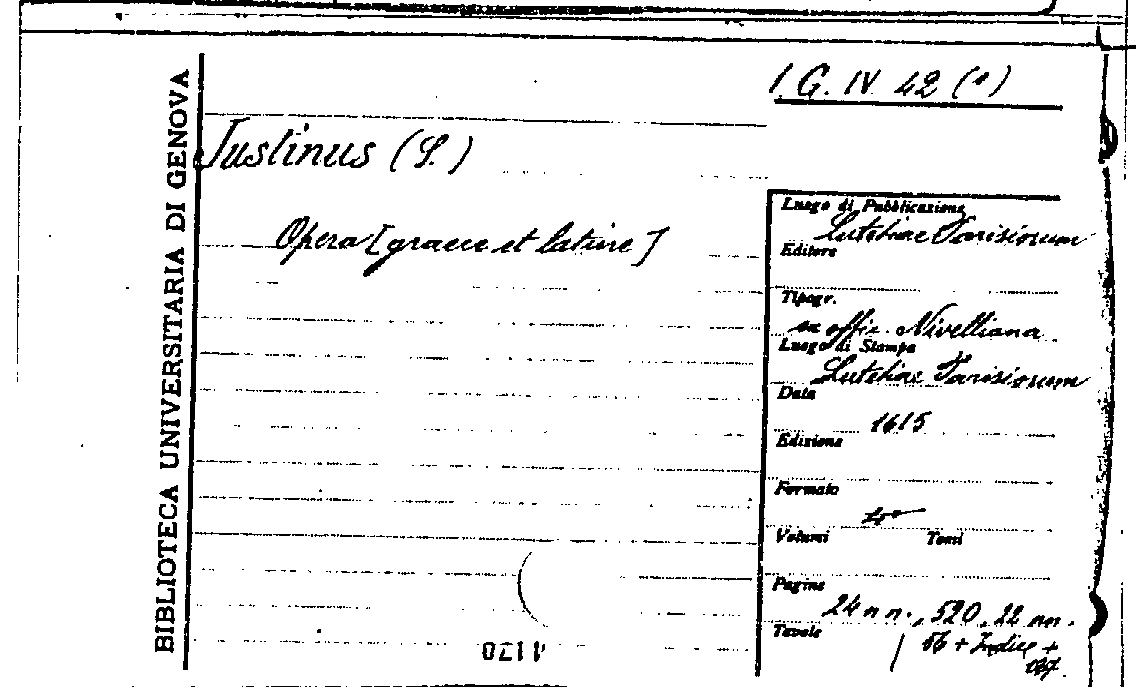 BIBLIOTECA UNIVERSITARIA DI GENOVA
1 G. IV 42 (1)
Justinus (S.)
Opera [graece et latine]
Luogo di Pubblicazione
Lutetiae Parisiorum
Editore
Tipogr.
ex offic. Nivelliana
Luogo di Stampa
Lutetiae Parisiorum
Data
1615
Edizione
Formato
4°
Volumi Tomi
Pagine
24 n n., 520, 22 nn.
Tavole
56 + Indice +
0211